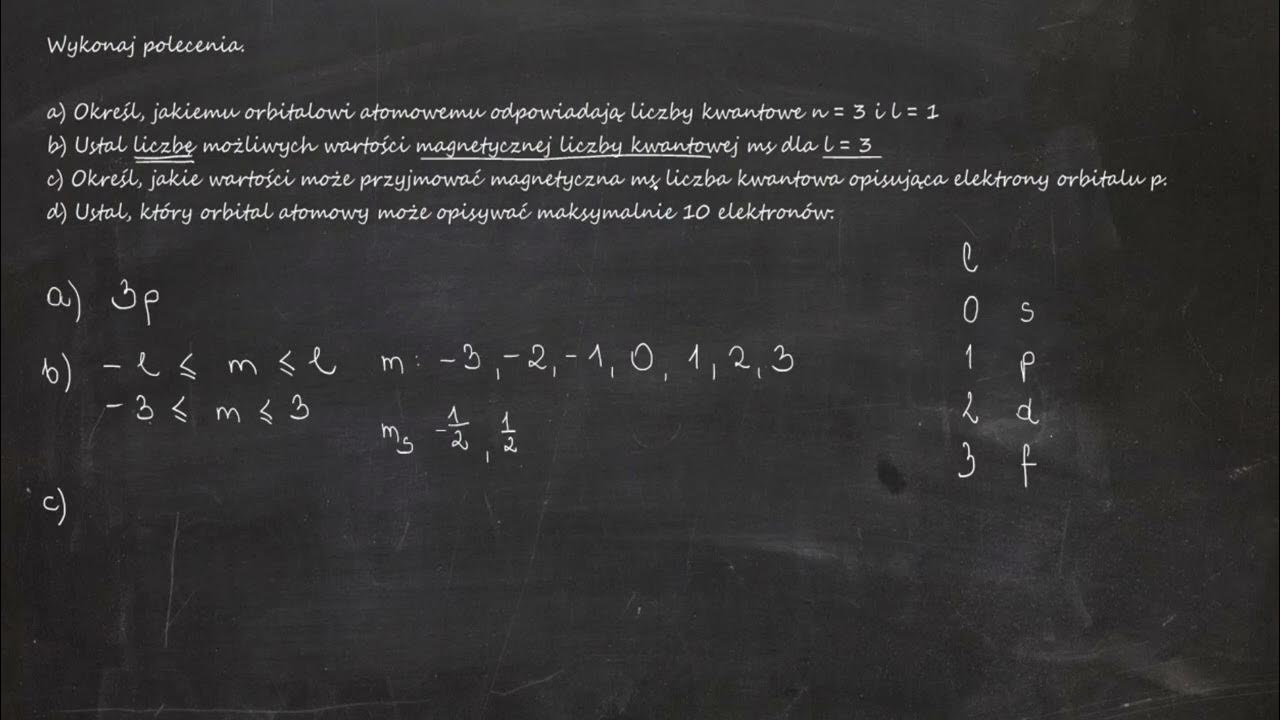 Wykonaj polecenia.
a) Określ, jakiemu orbitalowi atomowemu odpowiadają liczby kwantowe n = 3 i l = 1
b) Ustal liczbę możliwych wartości magnetycznej liczby kwantowej ms dla l = 3
c) Określ, jakie wartości może przyjmować magnetyczna ms liczba kwantowa opisująca elektrony orbitalu p.
d) Ustal, który orbital atomowy może opisywać maksymalnie 10 elektronów.
l
a) 3p
0 s
b) - l ⩽ m ⩽ l m: -3, -2, -1, 0, 1, 2, 3
1 p
- 3 ⩽ m ⩽ 3
2 d
ms -1/2, 1/2
3 f
c)